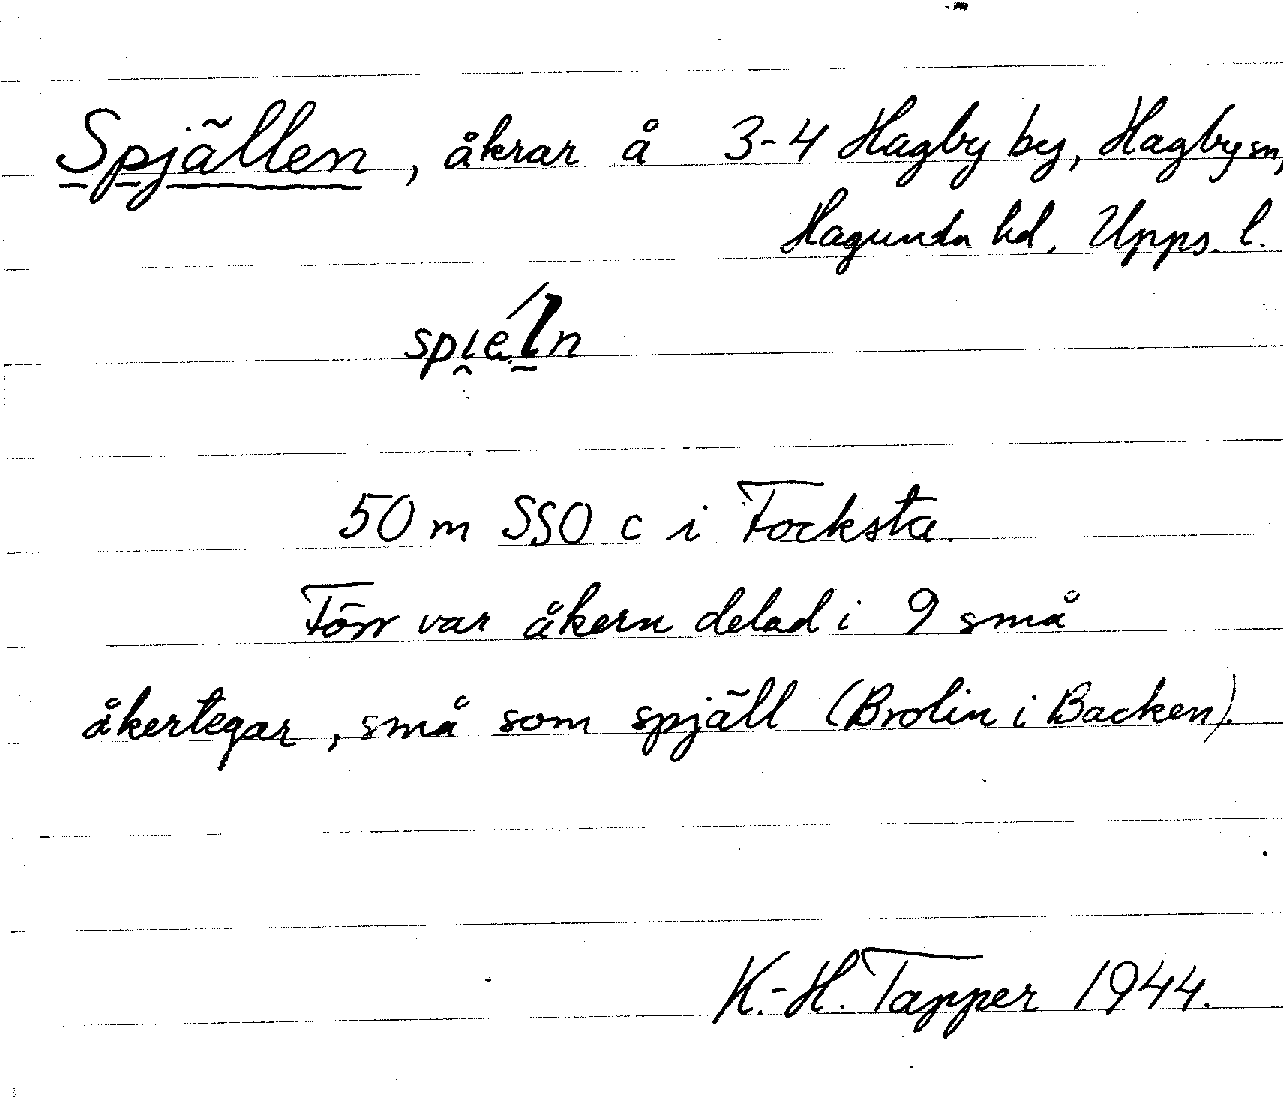 Spjällen, åkrar å 3-4 Hagby by, Hagby sn,
Hagunda hd. Upps. l.
50 m SSO c i Focksta.
Förr var åkern delad i 9 små
åkertegar, små som spjäll (Brolin i Backen).
K.-H. Tapper 1944.